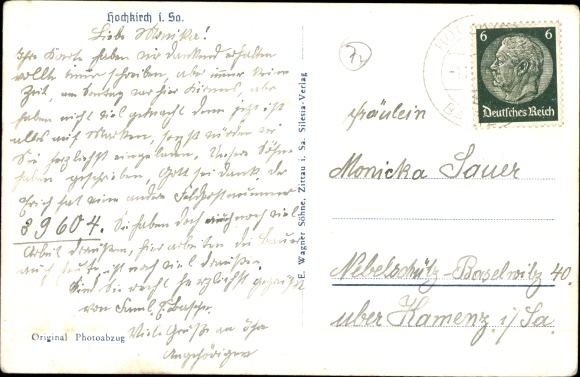 Hochkirch i. Sa.
Liebe Monika!
Ihre Karte haben wir dankend erhalten
wollte immer schreiben, aber immer keine
Zeit, am Sonntag war hier Kirmes, aber
haben nicht viel gemacht denn jetzt ist
alles auf Marken, sonst würden wir
Sie herzlichst eingeladen. Unsere Söhne
haben geschrieben, Gott sei dank, der
Erich hat eine andere Feldpostnummer
39604. Sie haben doch auch noch viel
Arbeit draußen, hier arbeiten die Bauern
auch heute ist noch viel draußen.
Sind Sie recht herzlichst gegrüßt
von Faml.
Viele Grüße an Ihre
Angehörigen
Original Photoabzug
E. Wagner Söhne, Zittau i. Sa. Silesia-Verlag
6 6
Deutsches Reich
Fräulein
Monicka Sauer
Nebelschütz-Baselwitz 40.
über Kamenz i/Sa.